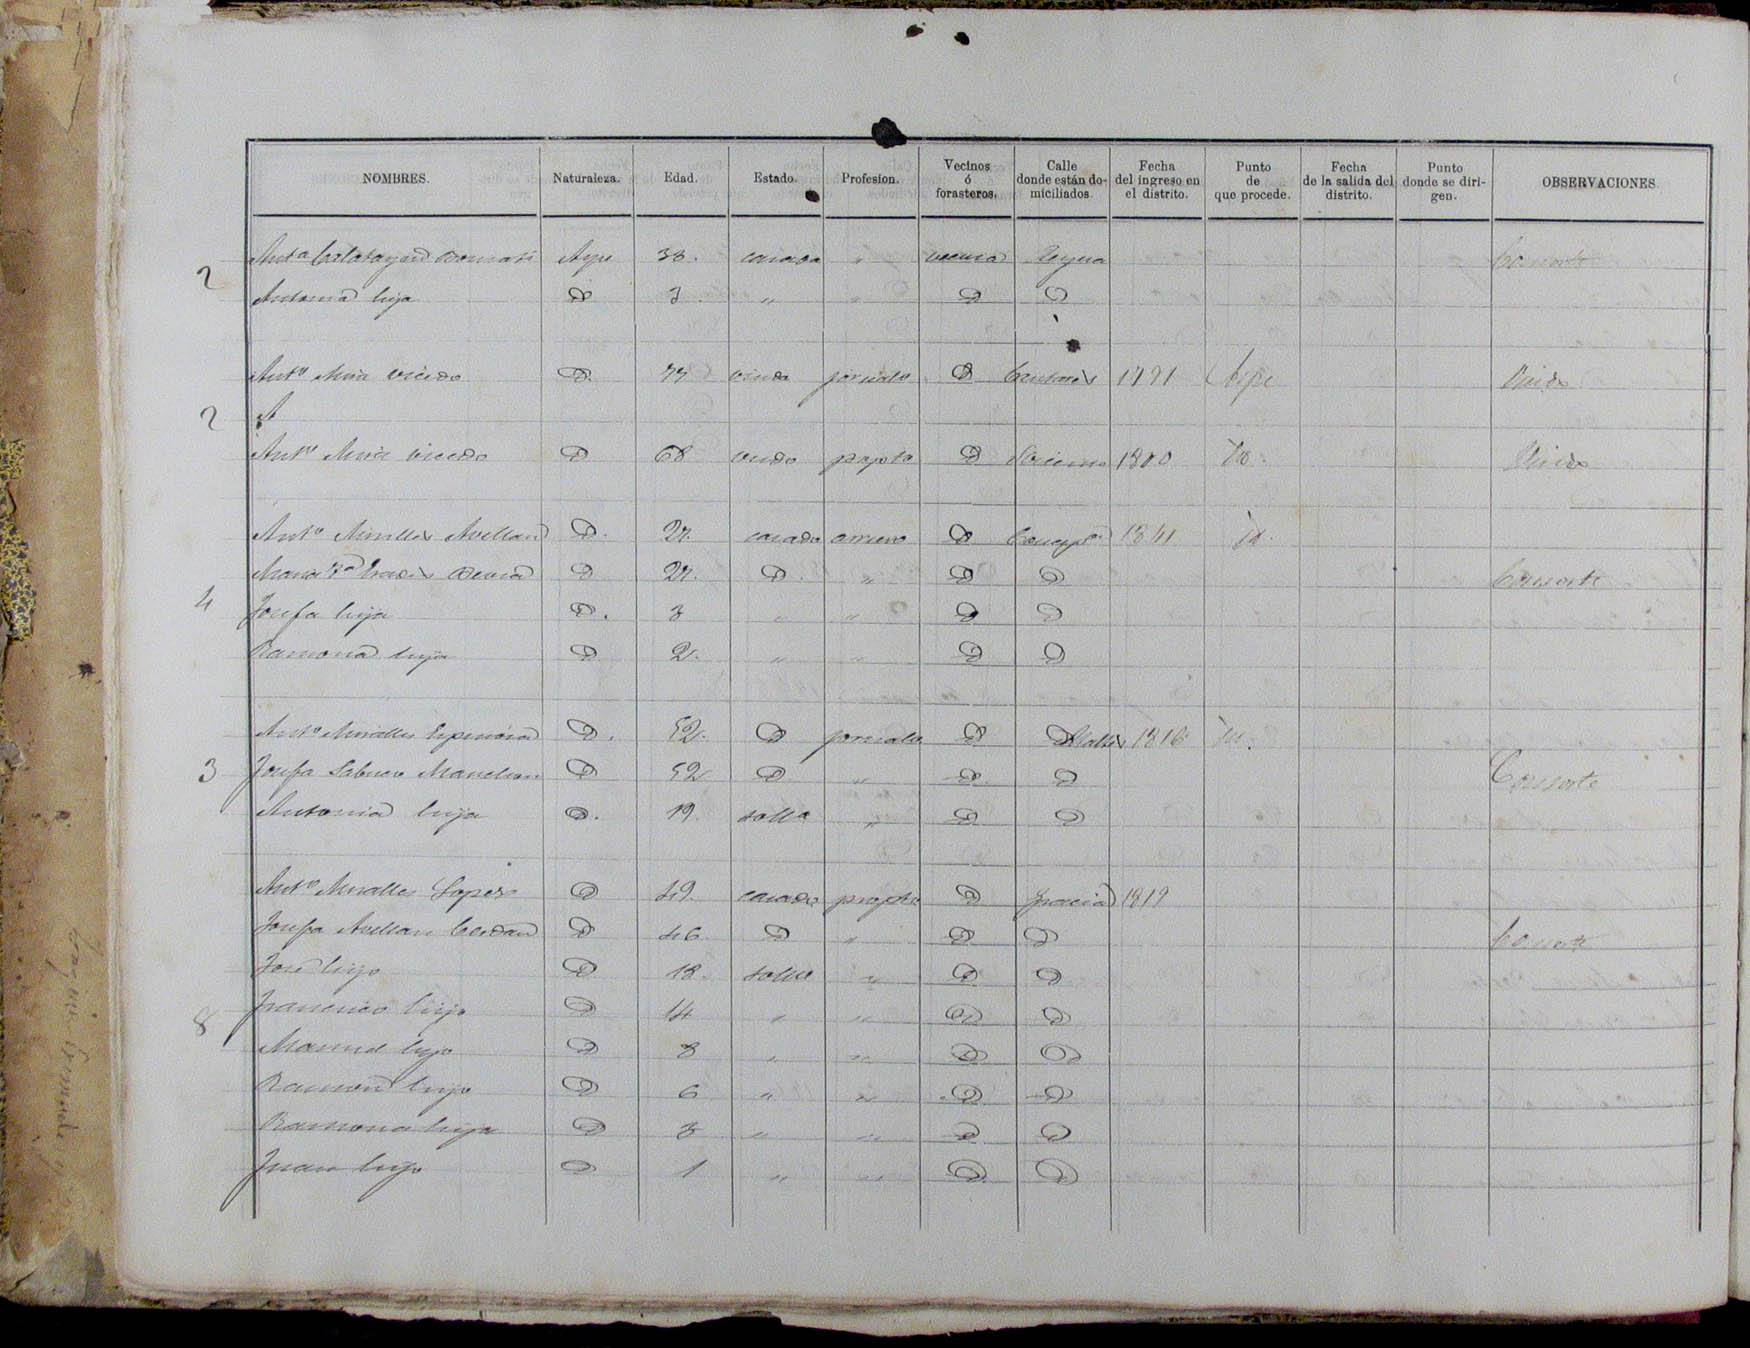 NOMBRES. Naturaleza. Edad. Estado. Profesion. Vecinos ó forasteros. Calle donde están domiciliados. Fecha del ingreso en el distrito. Punto de que procede. Fecha de la salida del distrito. Punto donde se dirigen. OBSERVACIONES.
2
Ant.ª Calatayud Aspe 38. casada " vecina Reyna Consorte
Antonia hija D 3. " " D D
Ant.º Mira Vicedo D. 77 viudo jornalo D 1791 Aspe Viudo
2
Ant.º Mira Vicedo D 68 viudo propto D 1800 Id. Viudo
Ant.º Miralles Avellan D. 27. casado arriero D Concepon 1841 Id.
Maria D 27. D. " D D Consorte
4
Josefa hija D. 3 " " D D
Ramona hija D 2. " " D D
Ant.º Miralles Espinosa D. 52. D jornalo D 1816 Id.
3
Josefa Sabuco Manchon D 52 D " D D Consorte
Antonia hija D. 19. solta " D D
Ant.º Miralles Lopez D 49. casado propto D Gracia 1819
Josefa Avellan Cerdan D 46 D " D D Consorte
José hijo D 18. solto " D D
Francisco hijo D 14 " " D D
8
Manuel hijo D 8 " " D D
Ramon hijo D 6 " " D D
Ramona hija D 3 " " D D
Juan hijo D 1 " " D D